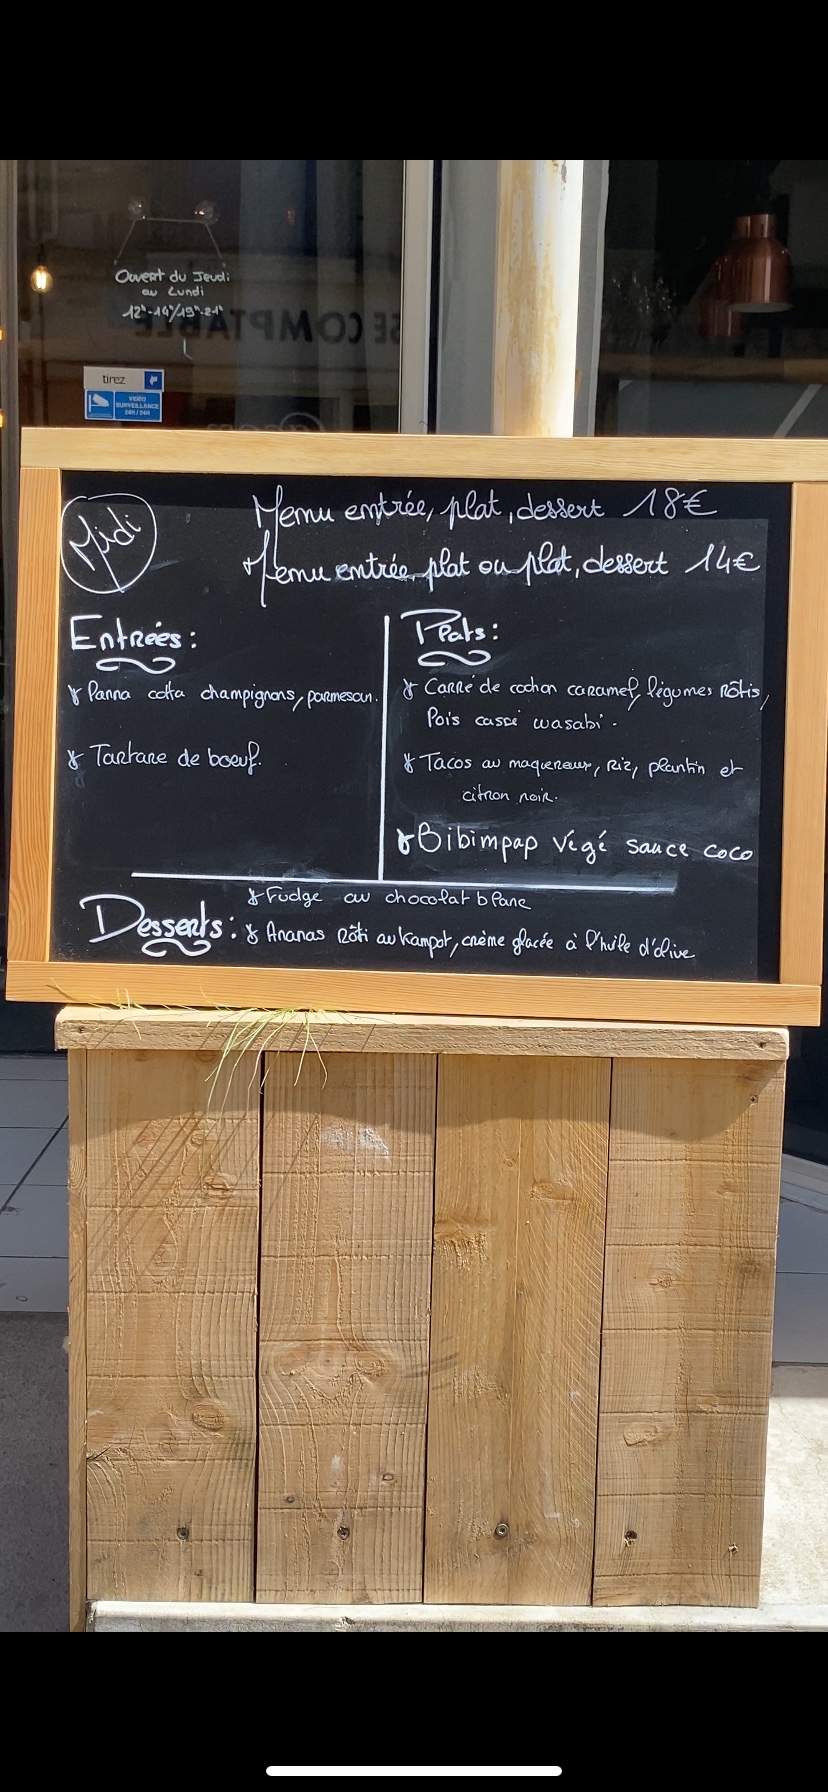 Ouvert du Jeudi
au Lundi
12h-14h/19h-21h
SE COMPTABLE
tirez
VIDÉO
SURVEILLANCE
24H / 24H
Midi
Menu entrée, plat, dessert 18€
Menu entrée, plat ou plat, dessert 14€
Entrées:
Panna cotta champignons, parmesan.
Tartare de boeuf.
Plats:
Carré de cochon caramel, légumes rôtis,
Pois cassé wasabi.
Tacos au maquereau, riz, plantin et
citron noir.
Bibimpap végé sauce coco
Desserts:
Fudge au chocolat blanc
Ananas rôti au Kampot, crème glacée à l'huile d'olive